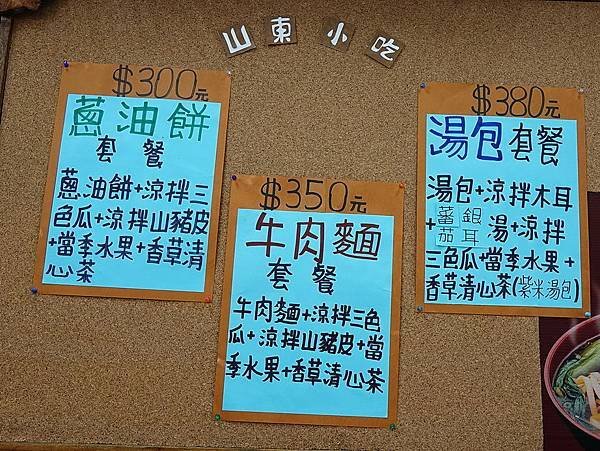 山東小吃
$300元
蔥油餅
套餐
蔥油餅+涼拌三
色瓜+涼拌山豬皮
+當季水果+香草清
心茶
$350元
牛肉麵
套餐
牛肉麵+涼拌三色
瓜+涼拌山豬皮+當
季水果+香草清心茶
$380元
湯包套餐
湯包+涼拌木耳
+蕃茄銀耳湯+涼拌
三色瓜+當季水果+
香草清心茶(紫米湯包)